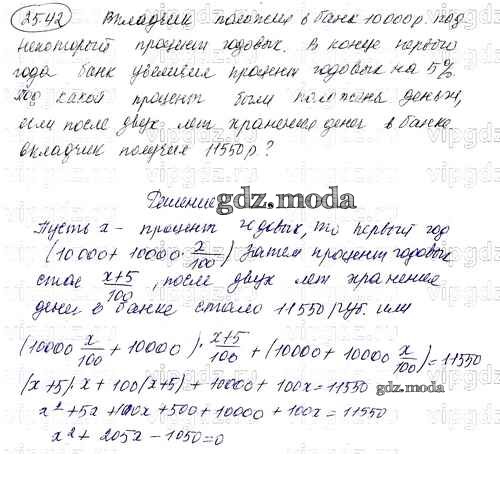 2542 Вкладчик положил в банк 10000р. под
некоторый процент годовых. В конце первого
года банк увеличил процент годовых на 5%
под какой процент были положены деньги,
если после двух лет хранения денег в банке
вкладчик получил 11550р?
Решение
gdz.moda
Пусть x - процент годовых, то первый год
(10000 + 10000 · x/100) Затем процент годовых
стал x+5/100, после двух лет хранения
денег в банке стало 11550 руб. или
(10000 x/100 + 10000) · x+5/100 + (10000 + 10000 x/100) = 11550
(x+5)·x + 100(x+5) + 10000 + 100x = 11550
gdz.moda
x² + 5x + 100x + 500 + 10000 + 100x = 11550
x² + 205x - 1050 = 0